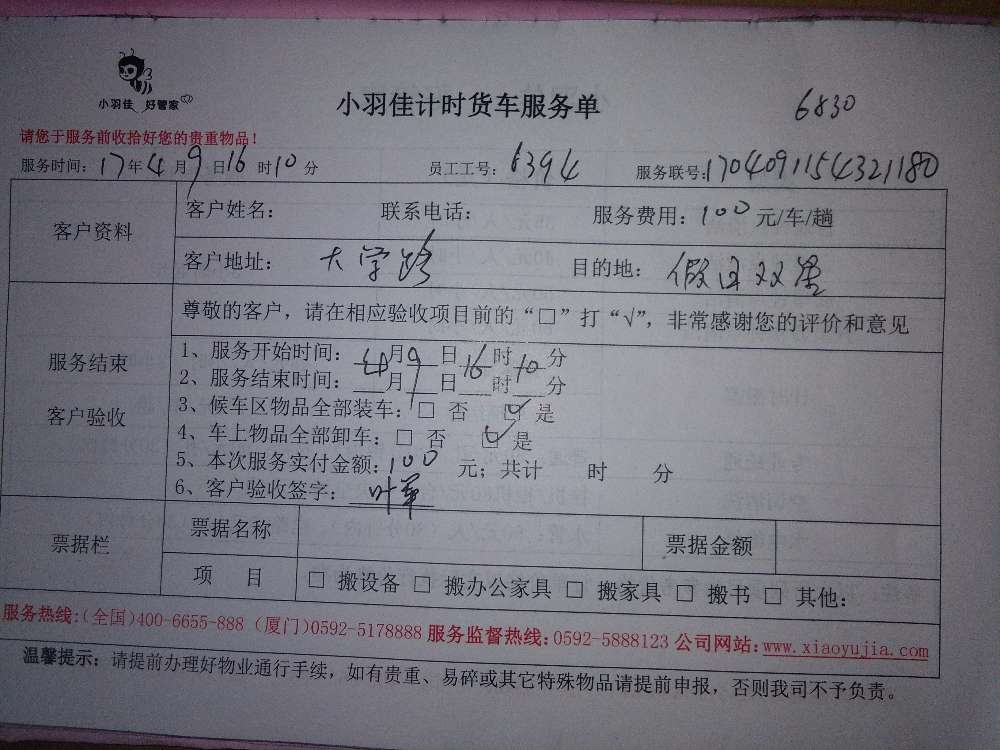 小羽佳 好管家
小羽佳计时货车服务单 6830
请您于服务前收拾好您的贵重物品！
服务时间：17年4月9日16时10分 员工工号：6394 服务联号：1704091154321180
客户资料
客户姓名： 联系电话： 服务费用：100元/车/趟
客户地址：大学路 目的地：假日双星
服务结束
客户验收
尊敬的客户，请在相应验收项目前的“□”打“√”，非常感谢您的评价和意见
1、服务开始时间：4月9日16时10分
2、服务结束时间：___月___日___时___分
3、候车区物品全部装车：□ 否 ☑ 是
4、车上物品全部卸车：□ 否 ☑ 是
5、本次服务实付金额：100 元；共计 时 分
6、客户验收签字：叶苹
票据栏
票据名称 票据金额
项 目 □ 搬设备 □ 搬办公家具 □ 搬家具 □ 搬书 □ 其他：
服务热线：(全国)400-6655-888 (厦门)0592-5178888 服务监督热线：0592-5888123 公司网站：www.xiaoyujia.com
温馨提示：请提前办理好物业通行手续，如有贵重、易碎或其它特殊物品请提前申报，否则我司不予负责。